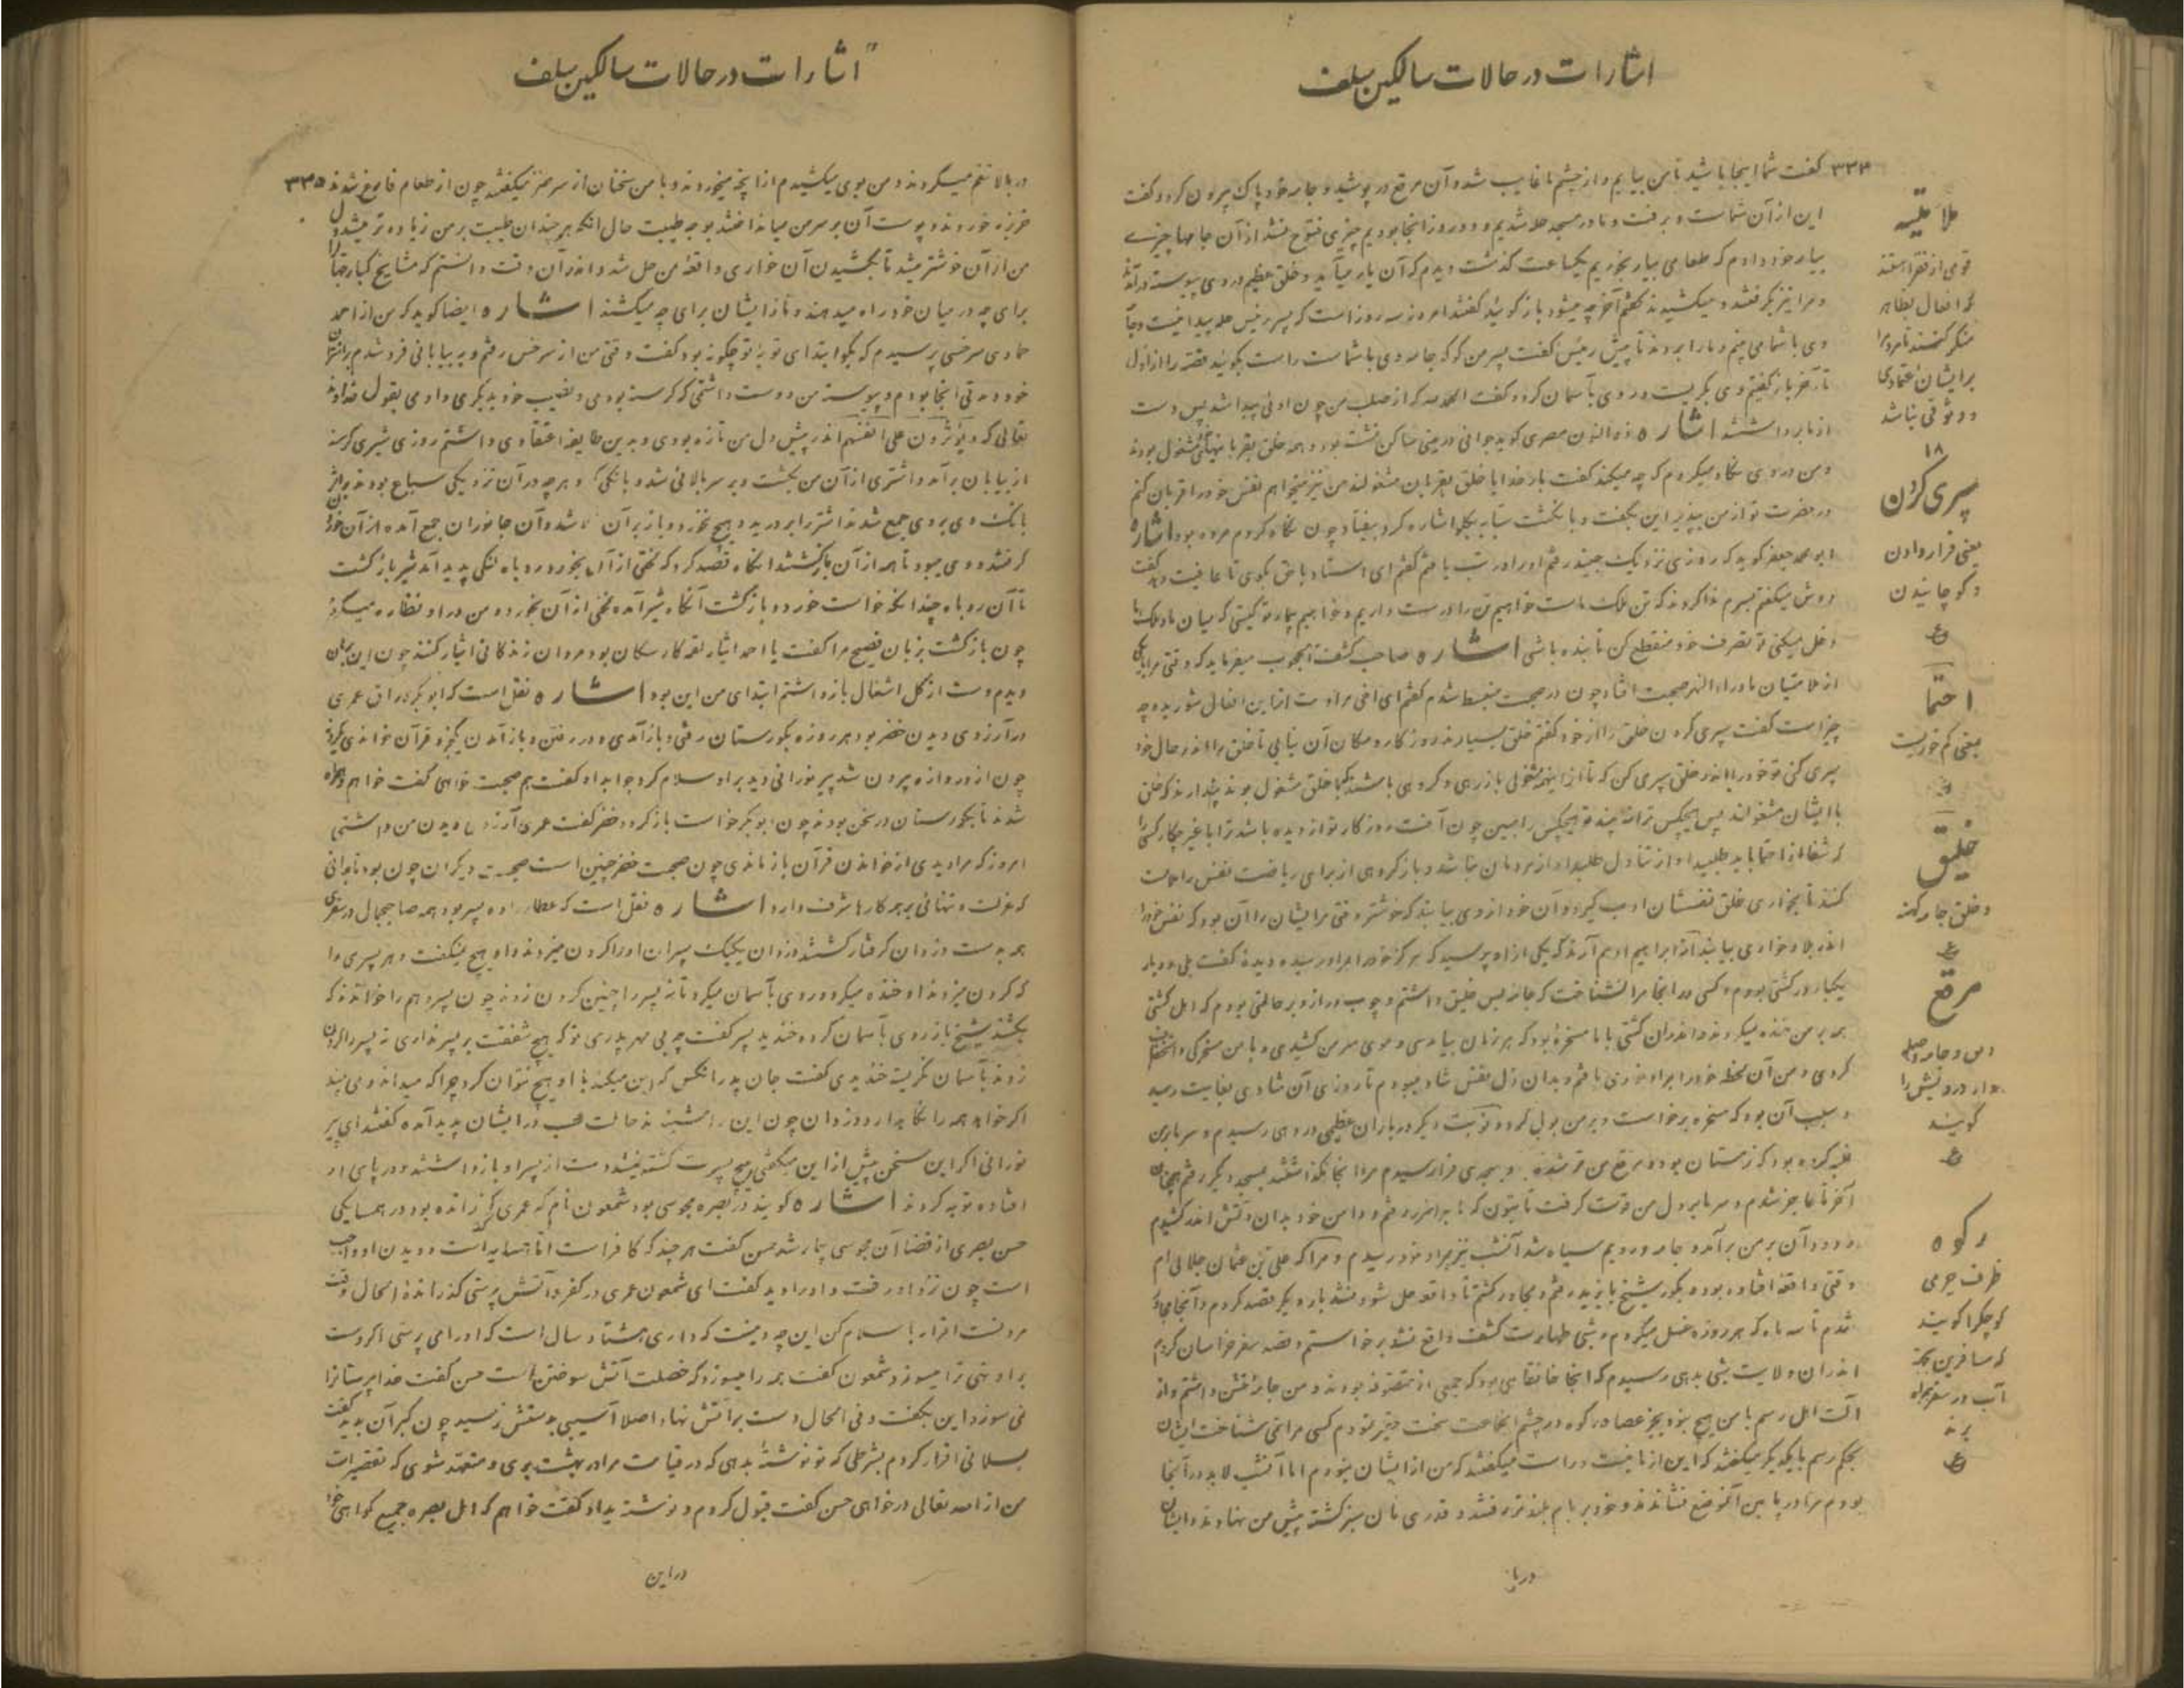 اشارات در حالات سالکین سلف
۳۳۴ گفت شما اینجا باشید تا من بیایم و از چشم ما غایب شد و آن مرقع در پوشید و جامه خود پاک بیرون کرد و گفت
این از آن شماست و برفت و ما در مسجد حله شدیم و دو روز آنجا بودیم چیزی فتوح نشد از آن جامها چیزی
بیار خود دادم که طعامی بیار بخوریم یکساعت گذشت دیدم که آن یار میآید و خلق عظیم در وی پیوسته
و مرا نیز بگرفتند و میکشیدند گفتم آخر چه میشود باز گوئید گفتند امروز سه روز است که پسر رئیس حله پیدا نیست
تا پیش رئیس گفت پسر من کو که جامه وی با شماست راست بگوئید قصه را از اول
تا آخر باز گفتیم وی بگریست و روی بآسمان کرد و گفت الحمد لله که از صلب من چون اوئی پیدا شد پس دست
از ما برداشتند اشاره ذو النون مصری گوید جوانی در منی ساکن نشسته بود و همه خلق بقربانیها مشغول بودند
و من در وی نگاه میکردم که چه میکند گفت بار خدایا خلق بقربان مشغولند من نیز میخواهم نفس خود را قربان کنم
در حضرت تو از من بپذیر این بگفت و بانگشت سبابه بگلو اشاره کرد بیفتاد چون نگاه کردم مرده بود اشاره
ابو محمد جعفر گوید که روزی نزدیک جنید رفتم او را در تب یافتم گفتم ای استاد با حق بگوی تا عافیت دهد گفت
دوش میگفتم بسرم ندا کردند که تن ملک ماست خواهیم تن را درست داریم و خواهیم بیمار تو کیستی که میان ما و ملک ما
دخل میکنی تو تصرف خود منقطع کن تا بنده باشی اشاره صاحب کشف المحجوب میفرماید که وقتی مرا با یکی
از ملامتیان ماوراء النهر صحبت افتاد چون در صحبت منبسط شدم گفتم ای اخی مرادت از این افعال شوریده چه
چیز است گفت سپری کردن خلق را از خود گفتم خلق بسیارند روزگار و مکان آن نیابی تا خلق را اندر حال خود
سپری کنی تو خود را اندر خلق سپری کن که تا از اینهمه مشغولی باز رهی و گروهی باشند که با خلق مشغول بوند پندارند که خلق
با ایشان مشغولند پس هیچکس ترا نه بیند تو هیچکس را مبین چون آفت روزگار تو از دیده باشد ترا با غیر چکار
که شفا از احتما باید طلبید او از تناول طلبد او از مردمان نباشد و باز گروهی از برای ریاضت نفس را ملامت
کنند تا بخواری خلق نفسشان ادب گیرد و آن خود از وی بیابند که خوشتر وقتی مر ایشان را آن بود که نفس خود را
اندر بلا و خواری بیابند از ابراهیم ادهم آرند که یکی از او پرسید که هرگز خود را بمراد رسیده دیدۀ گفت بلی دو بار
یکبار در کشتی بودم و کسی در آنجا مرا نشناخت که جامه بس خلیق داشتم و چوب دراز و بر حالتی بودم که اهل کشتی
همه بر من خنده میکردند و اندر آن کشتی با ما مسخرۀ بود که هر زمان بیامدی و موی سر من کشیدی و با من مسخرگی
کردی و من آن لحظه خود را بمراد خود می یافتم و بدان ذل نفس شاد میبودم تا روزی آن شادی بغایت رسید
و سبب آن بود که مسخره برخاست و بر من بول کرد و نوبت دیگر در باران عظیمی در دهی رسیدم و سرما بر من
غلبه کرده بود که زمستان بود و مرقع من تر شده و بمسجدی فراز رسیدم مرا آنجا نگذاشتند بمسجد دیگر رفتم همچنان
آخر تا عاجز شدم و سرما بر دل من قوت گرفت تا بتون گرمابه رفتم و دامن خود بدان آتش اندر کشیدم
دود آن بر من برآمد و جامه و رویم سیاه شد آنشب نیز بمراد خود رسیدم و مرا که علی بن عثمان جلابی ام
وقتی واقعۀ افتاده بود و بگور شیخ بایزید رفتم و مجاور گشتم تا واقعه حل شود نشد بار دیگر قصد کردم و آنجا مجاور
شدم تا سه ماه که هر روز سه غسل میکردم و سی طهارت کشف واقع نشد برخاستم و قصد سفر خراسان کردم
اندر آن ولایت شبی بدهی رسیدم که آنجا خانقاهی بود که جمعی از متصوفه بودند و من جامه خشن داشتم و از
آلت اهل رسم با من هیچ نبود بجز عصا و رکوه در چشم آنجماعت سخت حقیر نمودم کسی مرا نمی شناخت ایشان
بحکم رسم با یکدیگر میگفتند که این از ما نیست و راست میگفتند که من از ایشان نبودم اما آنشب لابد در آنجا
بودم مرا در پائین آنموضع نشاندند و خود بر بام بلند تر رفتند و قدری نان سبز گشته پیش من نهادند و ایشان
در با
ملامتیه
قومی از فقرا هستند
که افعال بظاهر
منکر کنند تا مردم را
بر ایشان اعتمادی
و وثوقی نباشد
۱۸
سپری کردن
یعنی قرار دادن
و کوچانیدن
احتما
یعنی کم خوریست
خلیق
و خلق جامه کهنه
مرقع
گویند
رکوه
ظرف چرمی
کوچک را گویند
که مسافرین بجهة
آب در سفر همراه
برند
اشارات در حالات سالکین سلف
در بالا تنعم میکردند و من بوی میکشیدم از آنچه میخوردند و با من سخنان از سر طنز میگفتند چون از طعام فارغ شدند ۳۳۵
خربزه خوردند و پوست آن بر سر من میانداختند بوجه طیبت حال آنکه هر چند آن طیبت بر من زیاده تر میشد دل
من از آن خوشتر میشد تا بکشیدن آن خواری واقعۀ من حل شد و اندر آن وقت دانستم که مشایخ کبار جهال را
برای چه در میان خود راه میدهند و ناز ایشان برای چه میکشند اشاره ایضا گوید که من از احمد
حمادی سرخسی پرسیدم که بگو ابتدای توبۀ تو چگونه بود گفت وقتی من از سرخس رفتم و به بیابانی فرو شدم بر اشتران
خود و مدتی آنجا بودم و پیوسته من دوست داشتمی که گرسنه بودمی و نصیب خود بدیگری دادمی بقول خداوند
تعالی که و یؤثرون علی انفسهم اندر پیش دل من تازه بودی و بدین طایفه اعتقادی داشتم روزی شیری گرسنه
از بیابان برآمد و اشتری از آن من بکشت و بر سر بالائی شد و بانگی کرد هر چه در آن نزدیکی سباع بودند بر اثر
بانگ وی بر وی جمع شدند اشتر را بر درید و هیچ نخورد و باز بر آن بالا شد و آن جانوران جمع آمده از آن خوردن
گرفتند و وی میبود تا همه از آن باز گشتند آنگاه قصد کرد که لختی از آن بخورد روباه لنگی پدید آمد شیر باز گشت
تا آن روباه چندانکه خواست خورد و باز گشت آنگاه شیر آمد و لختی از آن بخورد و من در او نظاره میکردم
چون باز گشت بزبان فصیح مرا گفت یا احمد ایثار لقمه کار سگان بود مردان زندگانی ایثار کنند چون این برهان
دیدم دست از کل اشغال باز داشتم ابتدای من این بود اشاره نقل است که ابو بکر وراق عمری
در آرزوی دیدن خضر بود هر روزه بگورستان رفتی و باز آمدی و در رفتن و باز آمدن یکجزو قرآن خواندی یکروز
چون از دروازه بیرون شد پیر نورانی دید بر او سلام کرد جواب داد گفت هم صحبت خواهی گفت خواهم همراه
شدند تا بگورستان در سخن بودند چون ابو بکر خواست باز گردد خضر گفت عمری آرزوی دیدن من داشتی
امروز که مرا دیدی از خواندن قرآن باز ماندی چون صحبت خضر چنین است صحبت دیگران چون بود تا بدانی
که عزلت و تنهائی بر همه کارها شرف دارد اشاره نقل است که عطار را ده پسر بود همه صاحبجمال در سفری
همه بدست دزدان گرفتار گشتند دزدان یکیک پسران او را گردن میزدند و او هیچ نمیگفت و هر پسری را
که گردن میزدند او خنده میکرد و روی بآسمان میکرد تا نه پسر را چنین گردن زدند چون پسر دهم را خواندند که
بکشند شیخ باز روی بآسمان کرده خندید پسر گفت چه بی مهر پدری تو که هیچ شفقت بر پسر نداری نه پسر را گردن
زدند بآسمان نگریسته خندیدی گفت جان پدر آنکس که این میکند با او هیچ نتوان کرد چرا که میداند و می بیند
اگر خواهد همه را نگاه دارد دزدان چون این را شنیدند حالت عجب در ایشان پدید آمد گفتند ای پیر
نورانی اگر این سخن پیش از این میگفتی هیچ پسرت کشته نمیشد دست از پسر او باز داشتند و در پای او
افتاده توبه کردند اشاره گویند در بصره مجوسی بود شمعون نام که عمری گذرانده بود در همسایگی
حسن بصری از قضا آن مجوسی بیمار شد حسن گفت هر چند که کافر است اما همسایه است و دیدن او واجب
است چون نزد او رفت و او را دید گفت ای شمعون عمری در کفر و آتش پرستی گذراندۀ الحال وقت
مردنست اقرار باسلام کن این چه دینست که داری هشتاد سال است که او را می پرستی اگر دست
بر او نهی ترا میسوزد شمعون گفت همه را میسوزد که خصلت آتش سوختن است حسن گفت خدا پرستانرا
نمی سوزد این بگفت و فی الحال دست بر آتش نهاد اصلا آسیبی بدستش نرسید چون گبر آن بدید گفت
بمسلمانی اقرار کردم بشرطی که تو نوشتۀ بدهی که در قیامت مرا در بهشت بری و متعهد شوی که تقصیرات
من از الله تعالی در خواهی حسن گفت قبول کردم و نوشته بداد گفت خواهم که اهل بصره جمیع گواهی خود
در این